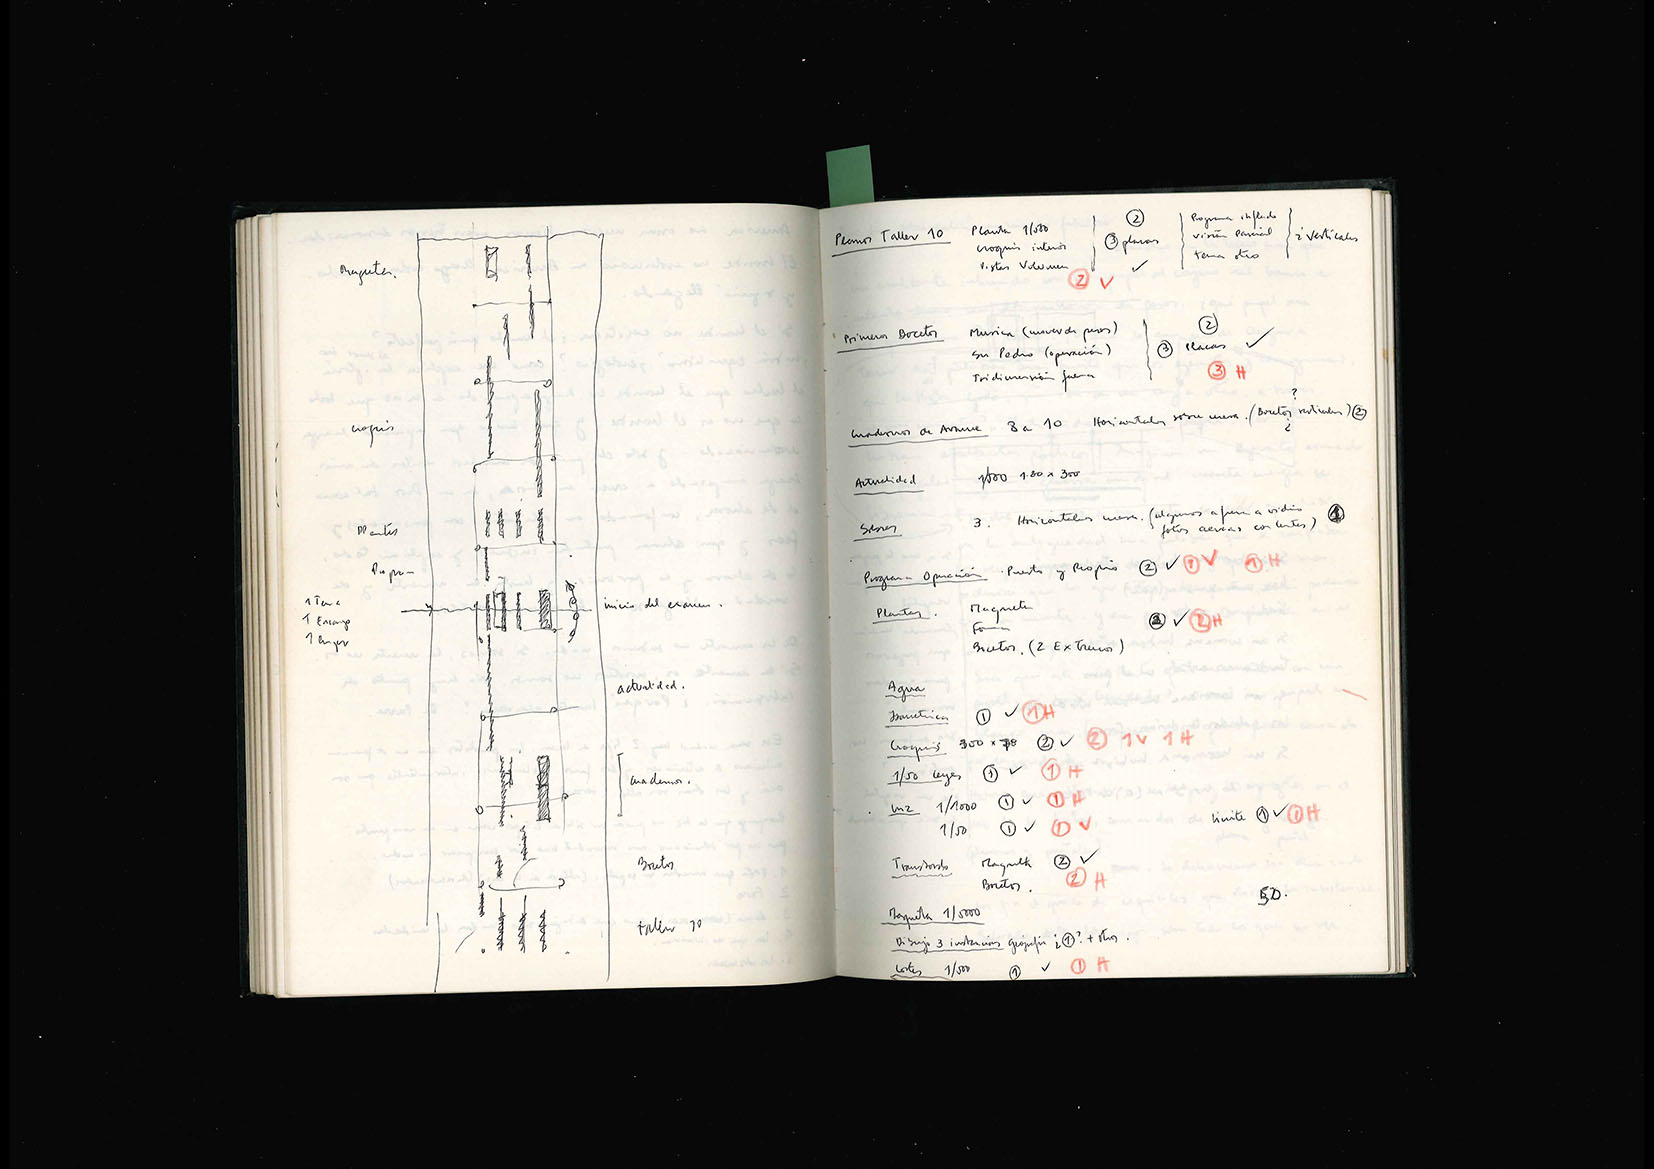 Maquetas.
croquis
Plantas
Program
1 Tema
1 Encargo
1
inicio del examen.
actualidad.
Cuadernos.
Bocetos
taller 10
Planos Taller 10
Planta 1/500
croquis interior
Vistas Volumen
2
3 placas
✓
2 V
Programa inflado
visión parcial
tema otro
2 verticales
Primeros Bocetos
Musica (mover de pesos)
San Pedro (operación)
Tridimensión fuerza
2
3 Placas ✓
3 H
Cuadernos de Avance 8 a 10 Horizontales sobre mesa. (Bocetos verticales) 2
?
¿
Actualidad 1.80 x 300
Sobres 3. Horizontales mesa. (algunos a pura vidrio
fotos aereas con lentes) 1
Programa Operación. Puerto y Propio 2 ✓ 1 V 1 H
Plantas. Maqueta
Forma
Bocetos. (2 Extremos)
2 ✓ 2 H
Agua
Isometrica 1 ✓ 1 H
Croquis 300 x 2 ✓ 2 1 V 1 H
1/50 Leyes 1 ✓ 1 H
Luz 1/1000 1 ✓ 1 H
1/50 1 ✓ 1 V
limite 1 ✓ 1 H
Transbordo Maqueta 2 ✓
Bocetos. 2 H
50.
Maqueta 1/5000
Dibujo 3 instancias ¿1? + otros.
Cortes 1/500 1 ✓ 1 H